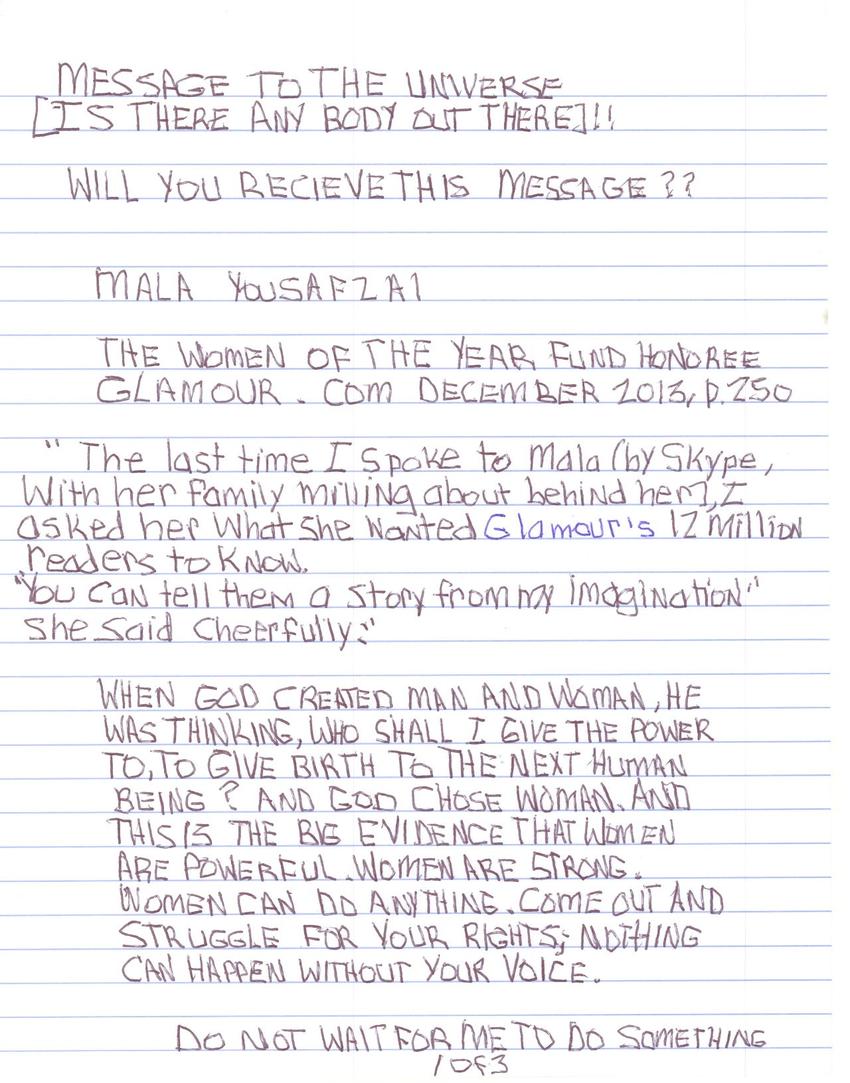 MESSAGE TO THE UNIVERSE
[IS THERE ANY BODY OUT THERE]!!
WILL YOU RECIEVE THIS MESSAGE ??
MALA YOUSAFZAI
THE WOMEN OF THE YEAR FUND HONOREE
GLAMOUR . COM DECEMBER 2013, p.250
" The last time I spoke to Mala (by Skype,
With her family milling about behind her], I
asked her what she wanted Glamour's 12 million
readers to know.
"You can tell them a story from my imagination"
she said cheerfully."
WHEN GOD CREATED MAN AND WOMAN, HE
WAS THINKING, WHO SHALL I GIVE THE POWER
TO, TO GIVE BIRTH TO THE NEXT HUMAN
BEING ? AND GOD CHOSE WOMAN. AND
THIS IS THE BIG EVIDENCE THAT WOMEN
ARE POWERFUL. WOMEN ARE STRONG.
WOMEN CAN DO ANYTHING. COME OUT AND
STRUGGLE FOR YOUR RIGHTS; NOTHING
CAN HAPPEN WITHOUT YOUR VOICE.
DO NOT WAIT FOR ME TO DO SOMETHING
1 of 3